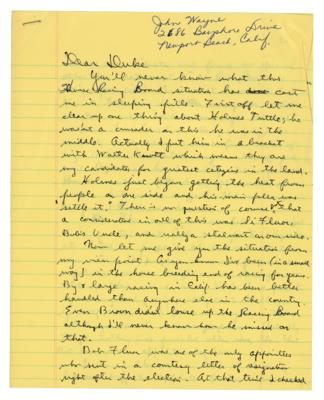 John Wayne
2686 Bayshore Drive
Newport Beach, Calif.
Dear Duke
You'll never know what this
Horse Racing Board situation has cost
me in sleeping pills. First off let me
clear up one thing about Holmes Tuttle; he
wasn't a crusader on this he was in the
middle. Actually I put him in a bracket
with Walter Knott which means they are
my candidates for greatest citizens in the land.
Holmes just began getting the heat from
people on one side and his main plea was
"settle it." There is no question of course that
a consideration in all of this was Si Fluor,
Bob's Uncle, and really a stalwart on our side.
Now let me give you the situation from
my view point. As you know I've been (in a small
way) in the horse breeding end of racing for years.
By & large racing in Calif. has been better
handled than anywhere else in the country.
Even Brown didn't louse up the Racing Board
although I'll never know how he missed on
that.
Bob Fluor was one of the only appointees
who sent in a courtesy letter of resignation
right after the election. At that time I checked